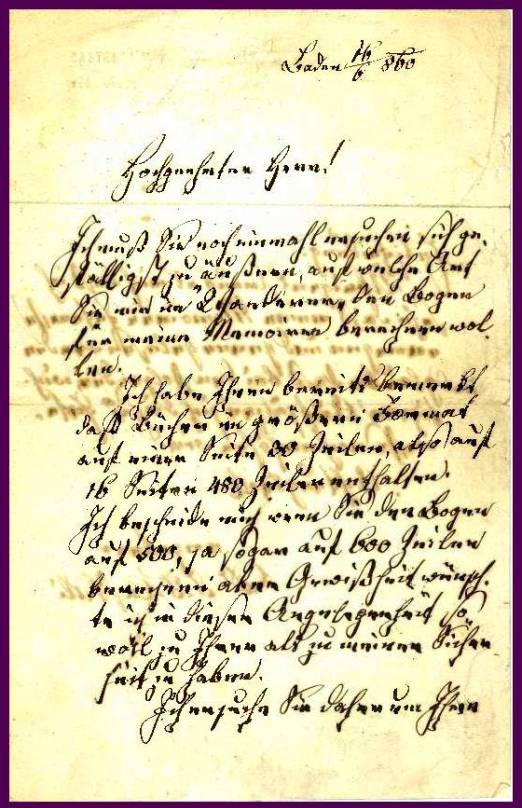 Baden 16/6 860
Hochgeehrter Herr!
Ich muß Sie noch einmahl ersuchen sich ge-
fälligst zu äußern, auf welche Art
Sie mir im den Bogen
für meine Memoiren berechnen wol-
len.
Ich habe Ihnen bereits bemerkt
daß Bücher im größern Format
auf einer Seite 30 Zeilen, also auf
16 Seiten 480 Zeilen enthalten.
Ich bescheide mich wenn Sie den Bogen
auf 500, ja sogar auf 600 Zeilen
berechnen aber Gewißheit wünsch-
te ich in dieser Angelegenheit so
wohl zu Ihrer als zu meiner Sicher
heit zu haben.
Ich ersuche Sie daher um Ihre